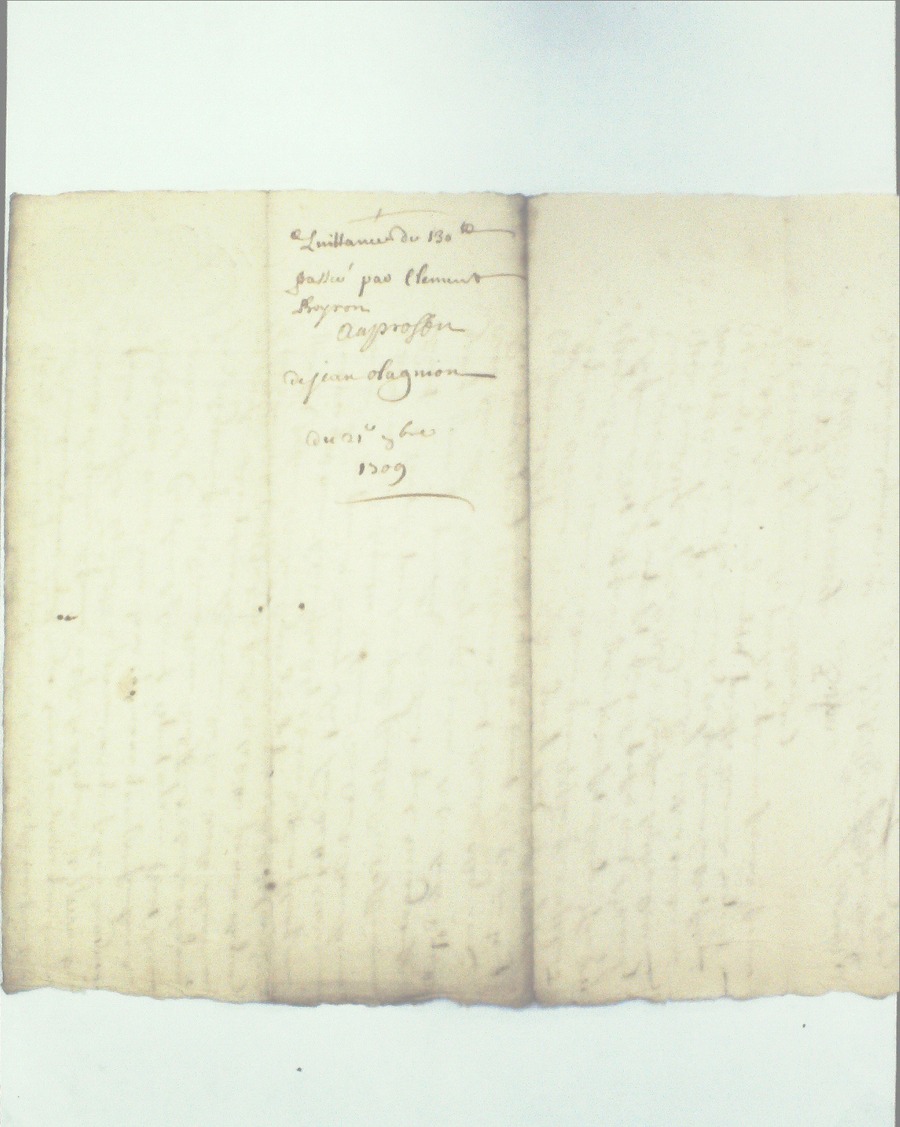 Quittance de 130 lt
passé par Clement
Beyron
au proffit
de jean olagnion
du 21e 9bre
1709